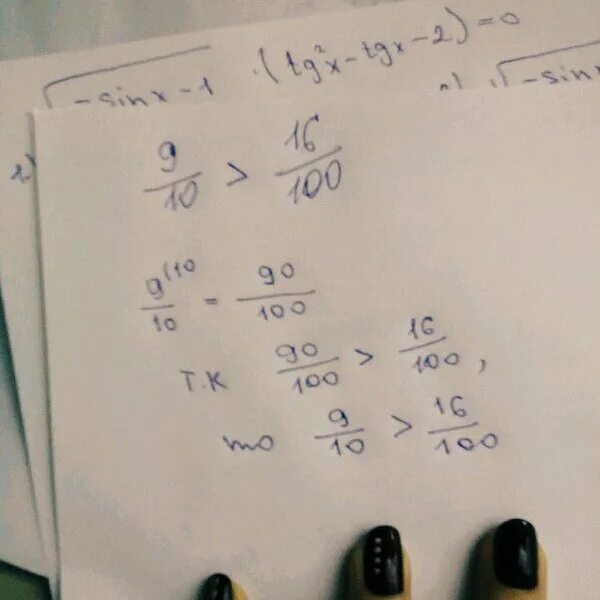 √-sinx-1 · (tg²x-tgx-2)=0
√-sinx
1.)
9/10 > 16/100
9⁽¹⁰/10 = 90/100
т.к 90/100 > 16/100,
то 9/10 > 16/100